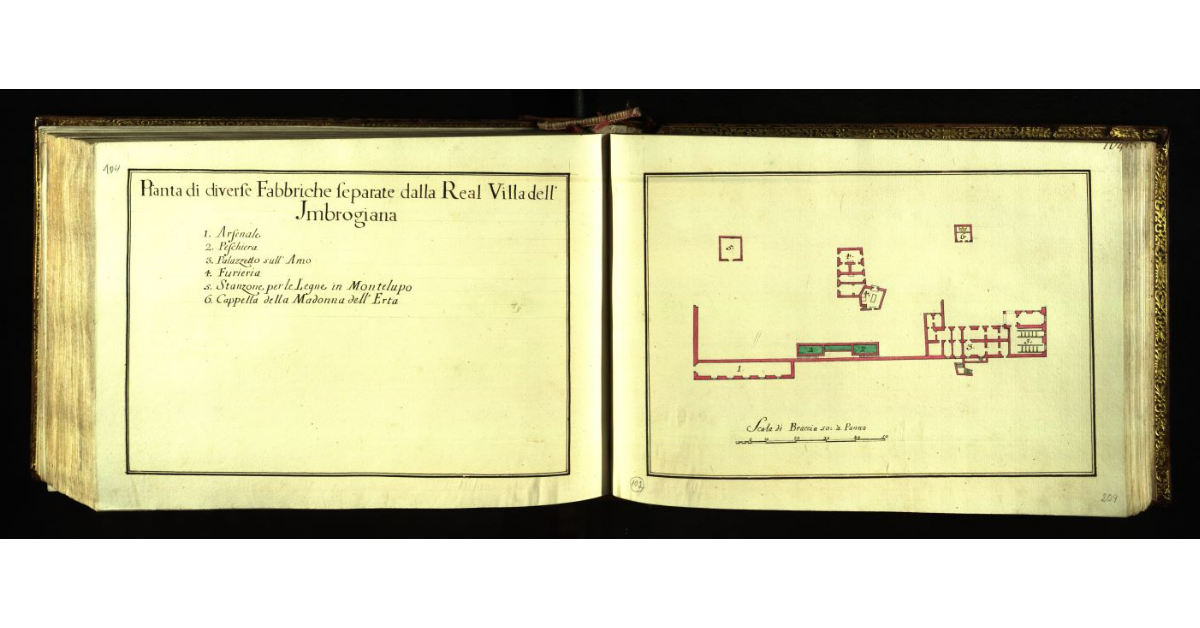 104
Pianta di diverſe Fabbriche ſeparate dalla Real Villa dell'
Imbrogiana
1. Arſenale
2. Peſchiera
3. Palazzetto sull' Arno
4. Furieria
5. Stanzone per le Legne in Montelupo
6. Cappella della Madonna dell' Erta
104
5.
6
4.
4.
2
2
1.
3.
3.
Scala di Braccia 50. a Panno
102
209